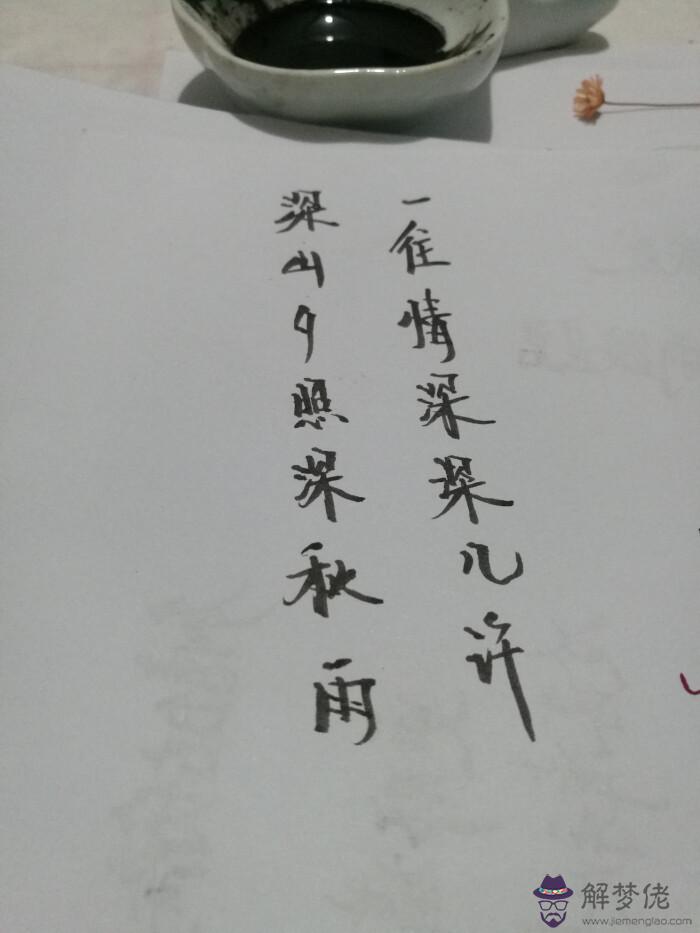 一往情深深几许
深山夕照深秋雨
解梦佬
www.jiemenglao.com